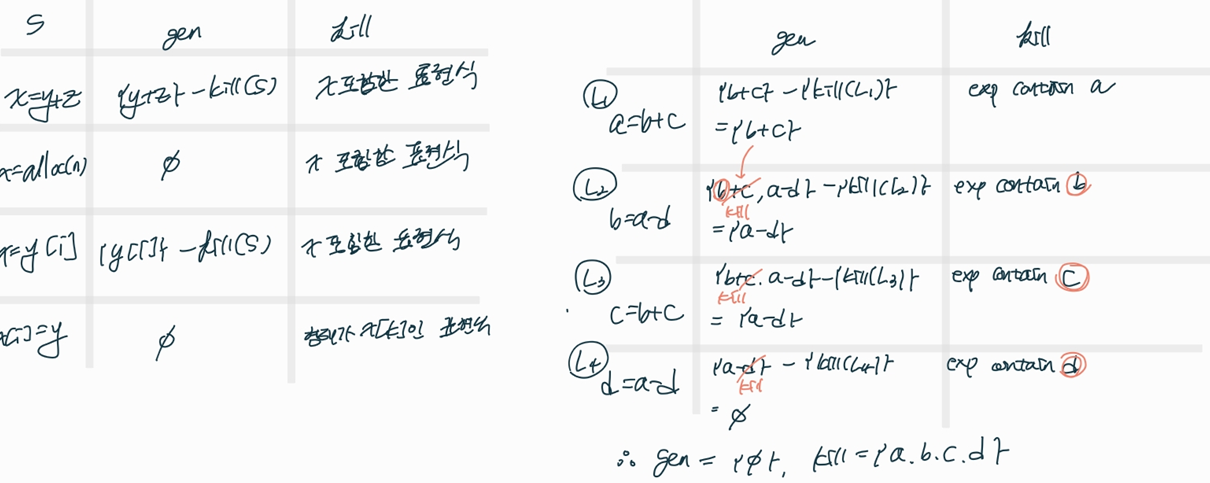 S gen kill
x=y+z {y+z} - kill(S) x 포함한 표현식
x=alloc(n) ∅ x 포함한 표현식
x=y[i] {y[i]} - kill(S) x 포함한 표현식
x[i]=y ∅ 형태가 x[k]인 표현식
gen kill
L1 a=b+c {b+c} - {kill(L1)} exp contain a
={b+c}
L2 b=a-d {b+c, a-d} - {kill(L2)} exp contain b
kill
={a-d}
L3 c=b+c {b+c. a-d} - {kill(L3)} exp contain c
kill
= {a-d}
L4 d=a-d {a-d} - {kill(L4)} exp contain d
kill
= ∅
∴ gen = {∅}, kill = {a.b.c.d}